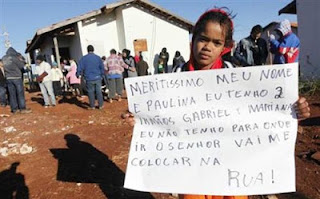 MERITISSIMO MEU NOME
E PAULINA EU TENHO 2
IRMÃOS GABRIEL E MARIANA
EU NÃO TENHO PARA ONDE
IR O SENHOR VAI ME
COLOCAR NA
RUA!